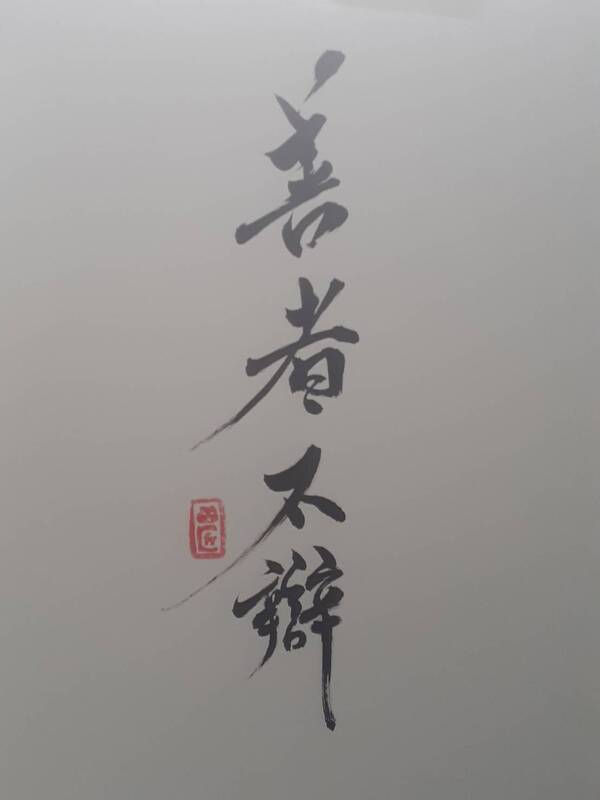 善者不辯